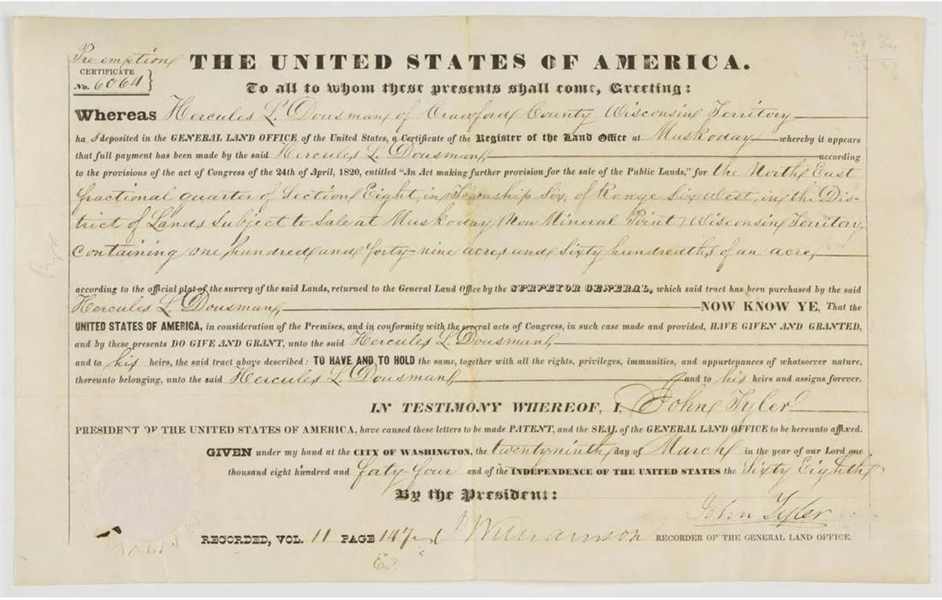 Pre-emption
CERTIFICATE
No. 6064
THE UNITED STATES OF AMERICA.
To all to whom these presents shall come, Greeting:
Whereas Hercules L. Dousman, of Crawford County Wisconsin Territory
ha s deposited in the GENERAL LAND OFFICE of the United States, a Certificate of the Register of the Land Office at Muskoday whereby it appears
that full payment has been made by the said Hercules L. Dousman, according
to the provisions of the act of Congress of the 24th of April, 1820, entitled "An Act making further provision for the sale of the Public Lands," for the North East
fractional quarter of Section Eight, in Township Six, of Range Six West, in the Dis-
trict of Lands Subject to Sale at Muskoday (Now Mineral Point) Wisconsin Territory,
Containing one hundred and forty-nine acres and Sixty hundredths of an acre,
according to the official plat of the survey of the said Lands, returned to the General Land Office by the SURVEYOR GENERAL, which said tract has been purchased by the said
Hercules L. Dousman, NOW KNOW YE, That the
UNITED STATES OF AMERICA, in consideration of the Premises, and in conformity with the several acts of Congress, in such case made and provided, HAVE GIVEN AND GRANTED,
and by these presents DO GIVE AND GRANT, unto the said Hercules L. Dousman,
and to his heirs, the said tract above described: TO HAVE AND TO HOLD the same, together with all the rights, privileges, immunities, and appurtenances of whatsoever nature,
thereunto belonging, unto the said Hercules L. Dousman, and to his heirs and assigns forever.
IN TESTIMONY WHEREOF, I, John Tyler
PRESIDENT OF THE UNITED STATES OF AMERICA, have caused these letters to be made PATENT, and the SEAL of the GENERAL LAND OFFICE to be hereunto affixed.
GIVEN under my hand at the CITY OF WASHINGTON, the twenty ninth day of March in the year of our Lord one
thousand eight hundred and forty four and of the INDEPENDENCE OF THE UNITED STATES the Sixty Eighth
By the President:
John Tyler
RECORDED, VOL. 11 PAGE Williamson RECORDER OF THE GENERAL LAND OFFICE.